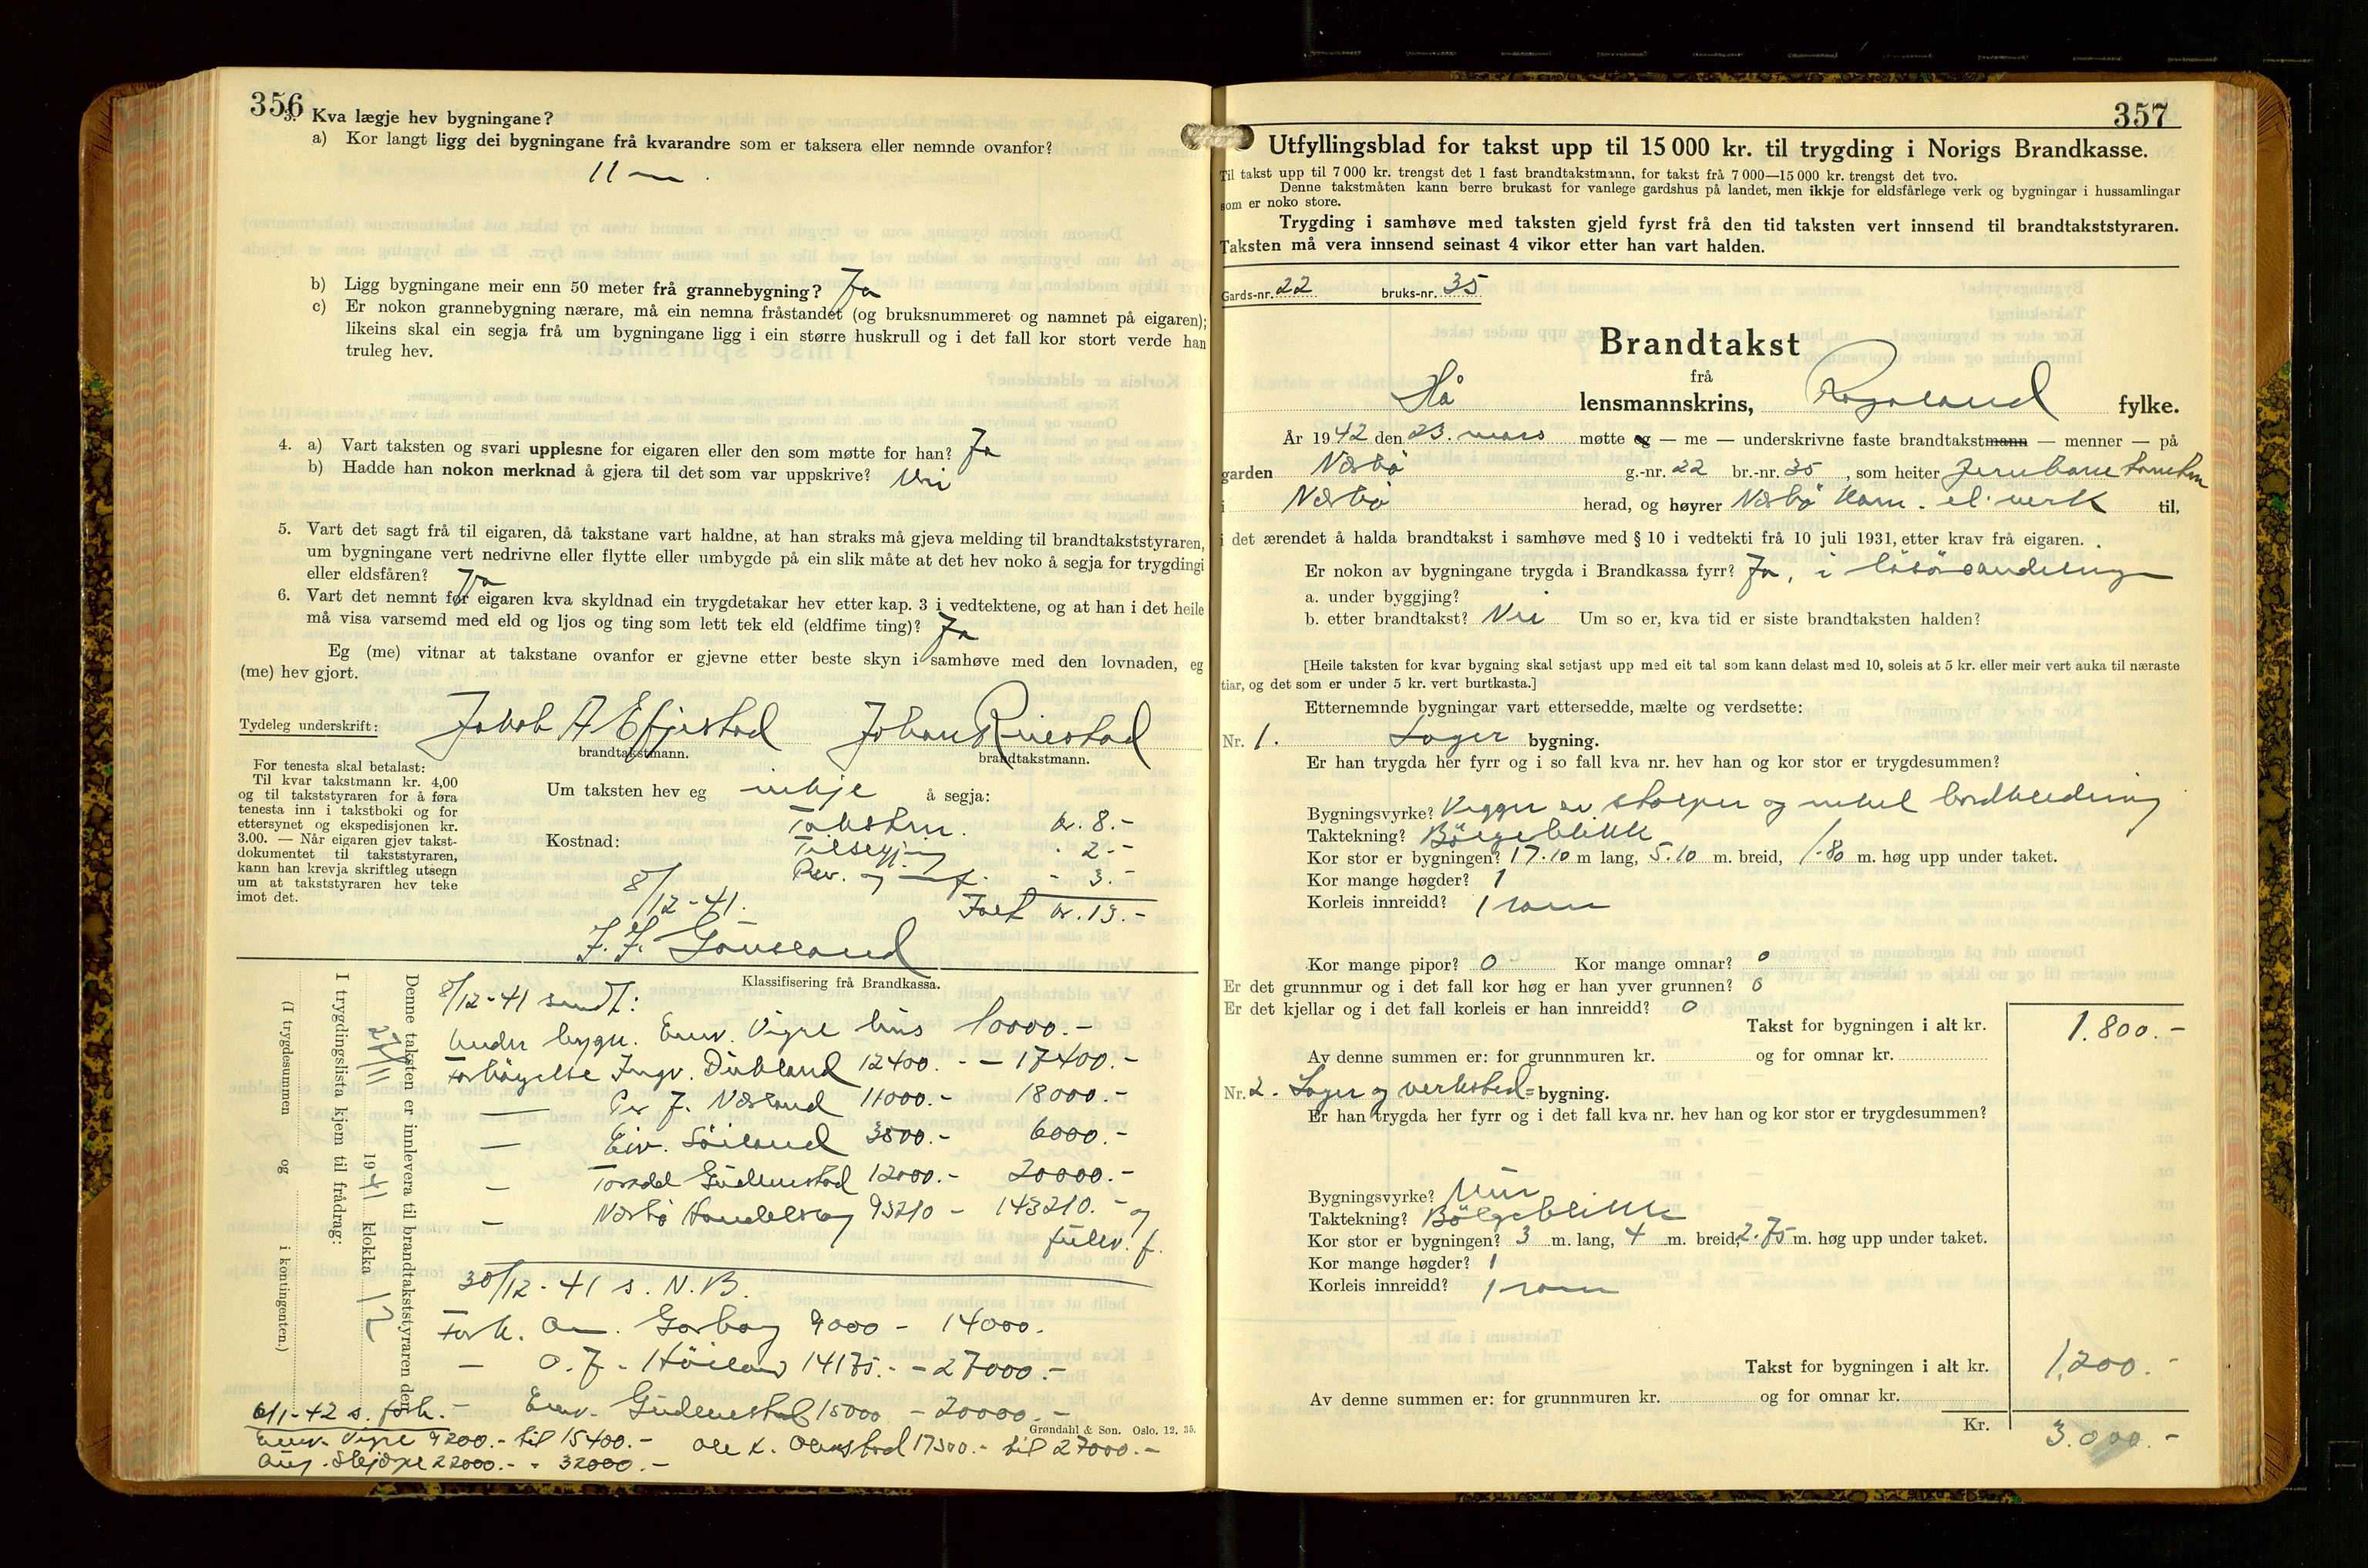 356
3. Kva lægje hev bygningane?
a) Kor langt ligg dei bygningane frå kvarandre som er taksera eller nemnde ovanfor?
11 m.
b) Ligg bygningane meir enn 50 meter frå grannebygning? Ja
c) Er nokon grannebygning nærare, må ein nemna fråstandet (og bruksnummeret og namnet på eigaren);
likeins skal ein segja frå um bygningane ligg i ein større huskrull og i det fall kor stort verde han
truleg hev.
4. a) Vart taksten og svari upplesne for eigaren eller den som møtte for han? Ja
b) Hadde han nokon merknad å gjera til det som var uppskrive? Nei
5. Vart det sagt frå til eigaren, då takstane vart haldne, at han straks må gjeva melding til brandtakststyraren,
um bygningane vert nedrivne eller flytte eller umbygde på ein slik måte at det hev noko å segja for trygdingi
eller eldsfåren? Ja
6. Vart det nemnt for eigaren kva skyldnad ein trygdetakar hev etter kap. 3 i vedtektene, og at han i det heile
må visa varsemd med eld og ljos og ting som lett tek eld (eldfime ting)? Ja
Eg (me) vitnar at takstane ovanfor er gjevne etter beste skyn i samhøve med den lovnaden, eg
(me) hev gjort.
Tydeleg underskrift: Jakob A Efjestad Johan Riiestad
brandtakstmann. brandtakstmann.
For tenesta skal betalast:
Til kvar takstmann kr. 4,00
og til takststyraren for å føra
tenesta inn i takstboki og for
ettersynet og ekspedisjonen kr.
3.00. — Når eigaren gjev takst-
dokumentet til takststyraren,
kann han krevja skriftleg utsegn
um at takststyraren hev teke
imot det.
Um taksten hev eg inkje å segja:
Kostnad: Takstm. kr. 8.-
Tilsegjing - 2.-
Prov. og f. - 3.-
8/12-41. Ialt kr. 13.-
Klassifisering frå Brandkassa.
8/12-41 sendt:
Under bygn. Enev. Vigre hus 10000.-
Forhøgelse Ingv. Dubland 12400.- - 17400.-
— Per J. Nærland 11000.- 18000.-
— Eiv. Søiland 3500.- 6000.-
— Torvald Gudmestad 12000.- 20000.-
— Nærbø Handelslag 93210 - 143210.- og
fullv. f.
30/12-41 s. N.B.
Forh. Garborg 9000 - 14000.
— O. J. Høiland 14175.- - 27000.-
Enev. Gudmestad 15000 - 20000.-
6/1-42 s. forh.-
Enev. Vigre 9200.- til 15400.- Ole K. Obrestad 17500.- til 27000.-
Aug. Skjærpe 22000.- - 32000.-
Grøndahl & Søn. Oslo. 12. 35.
Denne taksten er innlevera til brandtakststyraren den
27/11 1941 klokka 12
I trygdingslista kjem til frådrag:
(I trygdesummen og i kontingenten.)
357
Utfyllingsblad for takst upp til 15 000 kr. til trygding i Norigs Brandkasse.
Til takst upp til 7 000 kr. trengst det 1 fast brandtakstmann, for takst frå 7 000—15 000 kr. trengst det tvo.
Denne takstmåten kann berre brukast for vanlege gardshus på landet, men ikkje for eldsfårlege verk og bygningar i hussamlingar
som er noko store.
Trygding i samhøve med taksten gjeld fyrst frå den tid taksten vert innsend til brandtakststyraren.
Taksten må vera innsend seinast 4 vikor etter han vart halden.
Gards-nr. 22 bruks-nr. 35
Brandtakst
frå
Hå lensmannskrins, Rogaland fylke.
År 1942 den 23. mars møtte eg — me — underskrivne faste brandtakstmann — menner — på
garden Nærbø g.-nr. 22 br.-nr. 35, som heiter Jernbanetomten
i Nærbø herad, og høyrer Nærbø kom. el. verk til,
i det ærendet å halda brandtakst i samhøve med § 10 i vedtekti frå 10 juli 1931, etter krav frå eigaren.
Er nokon av bygningane trygda i Brandkassa fyrr? Ja, i løsøreavdeling
a. under byggjing?
b. etter brandtakst? Nei Um so er, kva tid er siste brandtaksten halden?
[Heile taksten for kvar bygning skal setjast upp med eit tal som kann delast med 10, soleis at 5 kr. eller meir vert auka til næraste
tiar, og det som er under 5 kr. vert burtkasta.]
Etternemnde bygningar vart ettersedde, mælte og verdsette:
Nr. 1. Lager bygning.
Er han trygda her fyrr og i so fall kva nr. hev han og kor stor er trygdesummen?
Bygningsvyrke? Vegger av stolper og enkel bordkledning
Taktekning? Bølgeblikk
Kor stor er bygningen? 17.10 m lang, 5.10 m. breid, 1.80 m. høg upp under taket.
Kor mange høgder? 1
Korleis innreidd? 1 rom
Kor mange pipor? 0 Kor mange omnar? 0
Er det grunnmur og i det fall kor høg er han yver grunnen? 0
Er det kjellar og i det fall korleis er han innreidd? 0
Takst for bygningen i alt kr. 1.800.-
Av denne summen er: for grunnmuren kr. og for omnar kr.
Nr. 2. Lager og verksted= bygning.
Er han trygda her fyrr og i det fall kva nr. hev han og kor stor er trygdesummen?
Bygningsvyrke? Mur
Taktekning? Bølgeblikk
Kor stor er bygningen? 3 m. lang, 4 m. breid, 2.75 m. høg upp under taket.
Kor mange høgder? 1
Korleis innreidd? 1 rom
Takst for bygningen i alt kr. 1.200.-
Av denne summen er: for grunnmuren kr. og for omnar kr.
Kr. 3.000.-